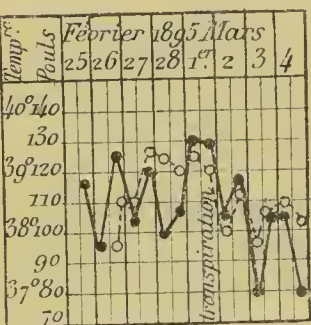 Temp.re Pouls Février 1895 Mars
25 26 27 28 1er. 2 3 4
40° 140
130
39° 120
110
38° 100
90
37° 80
70
transpiration